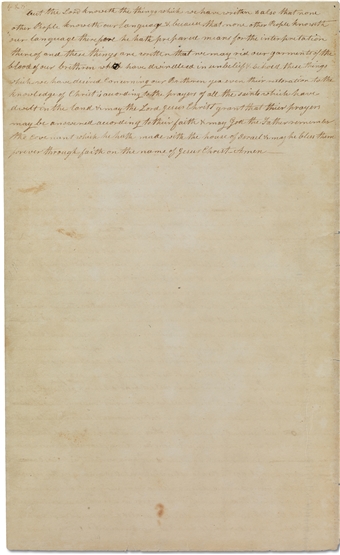 but the Lord knoweth the things which we have writen & also that none
other People knoweth our Language & because that none other People knoweth
our Language therefore he hath prepared means for the interpretation
thereof and these things are written that we may rid our garments of the
blood of our brethren who have dwindled in unbelief & behold these things
which we have desired concerning our Brethren yea even their restoration to the
knowledge of Christ is according to the prayers of all the saints which have
dwelt in the land & may the Lord Jesus Christ grant that their prayers
may be answered according to their faith & may God the Father remember
the covenant which he hath made with the house of Israel & may he bless them
forever through faith on the name of Jesus Christ Amen